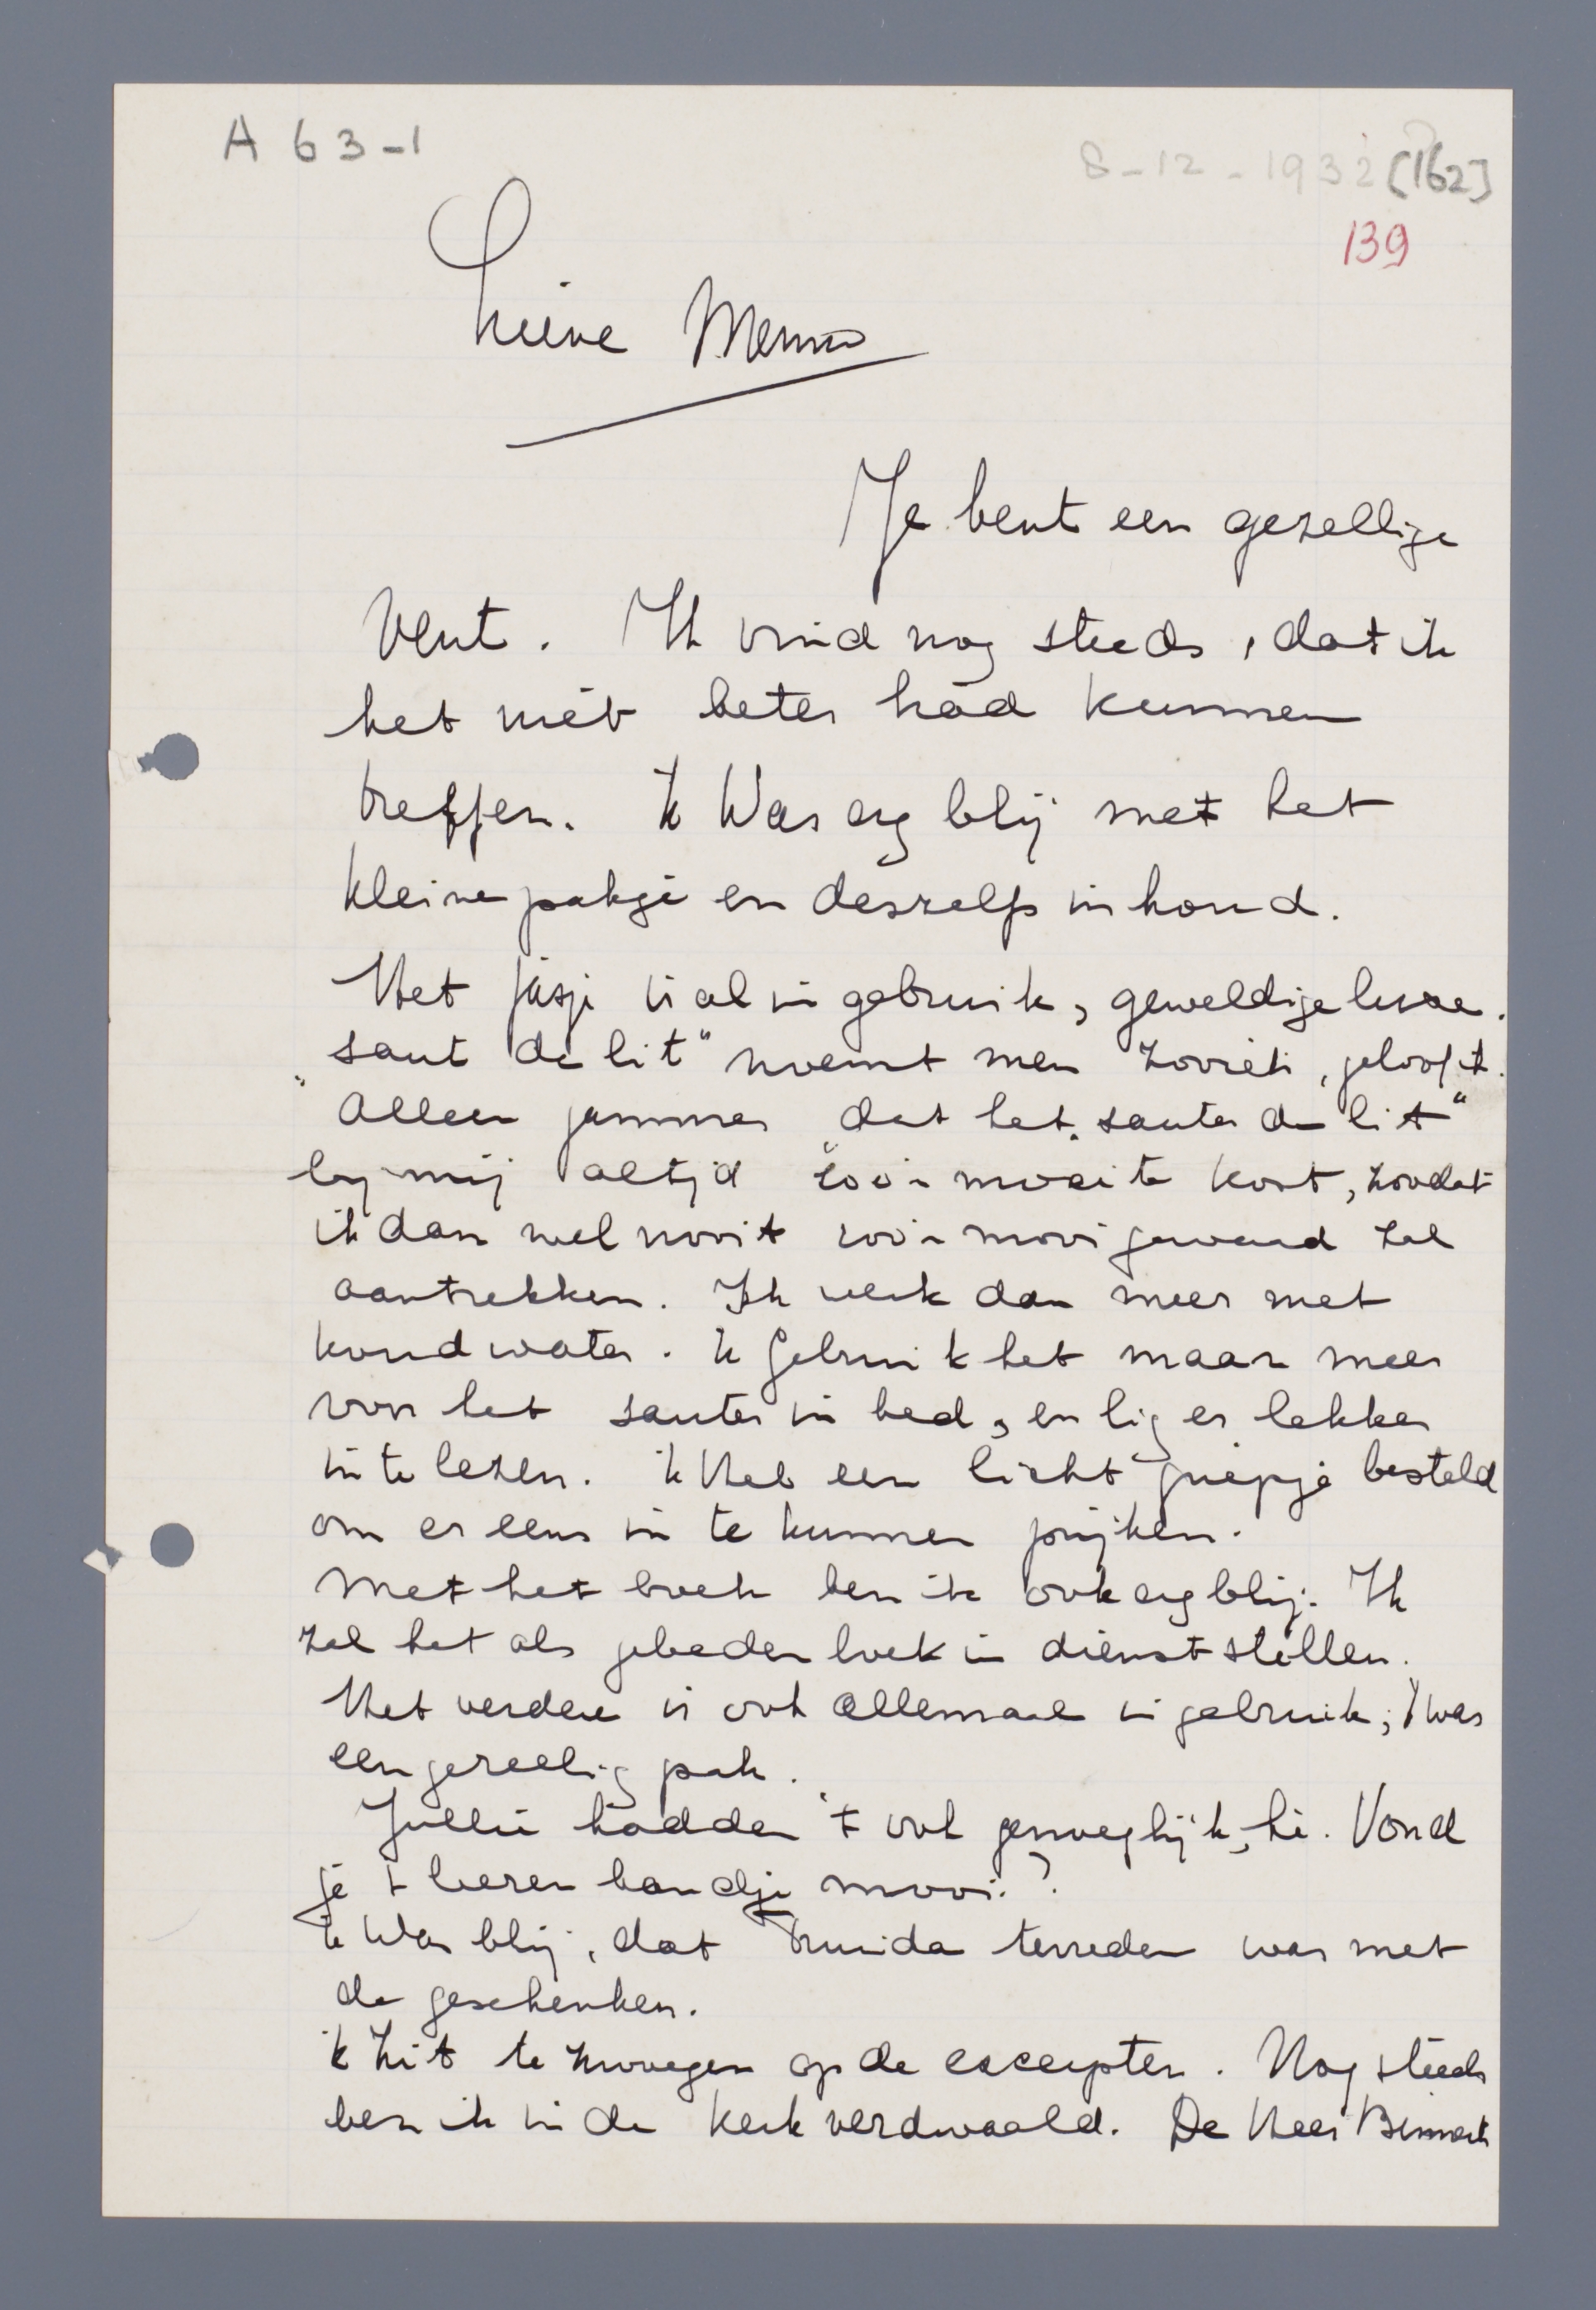 A 63-1
8-12-1932 [162]
139
Lieve Menno
Je bent een gezellige
Vent. Ik vind nog steeds, dat ik
het niet beter had kunnen
treffen. Ik Was erg blij met het
kleine pakje en deszelfs inhoud.
Het jasje is al in gebruik, geweldige luxe.
"saut de lit" noemt men zooiets, geloof ik.
Alleen jammer dat het "sauter du lit"
bij mij altijd zoo'n moeite kost, zoodat
ik dan wel nooit zoo'n mooi gewaad zal
aantrekken. Ik werk dan meer met
koud water. Ik gebruik het maar meer
voor het sauter in bed, en lig er lekker
in te lezen. Ik Heb een licht griepje besteld
om er eens in te kunnen prijken.
Met het boek ben ik ook erg blij. Ik
zal het als gebedenboek in dienst stellen.
Het verdere is ook allemaal in gebruik; 't was
een gezellig pak.
Jullie hadden 't ook genoegelijk, hè. Vond
je 't leeren bandje mooi?
Ik Was blij, dat Truida tevreden was met
de geschenken.
Ik Zit te zwoegen op de excerpten. Nog steeds
ben ik in de Kerk verdwaald. De Heer